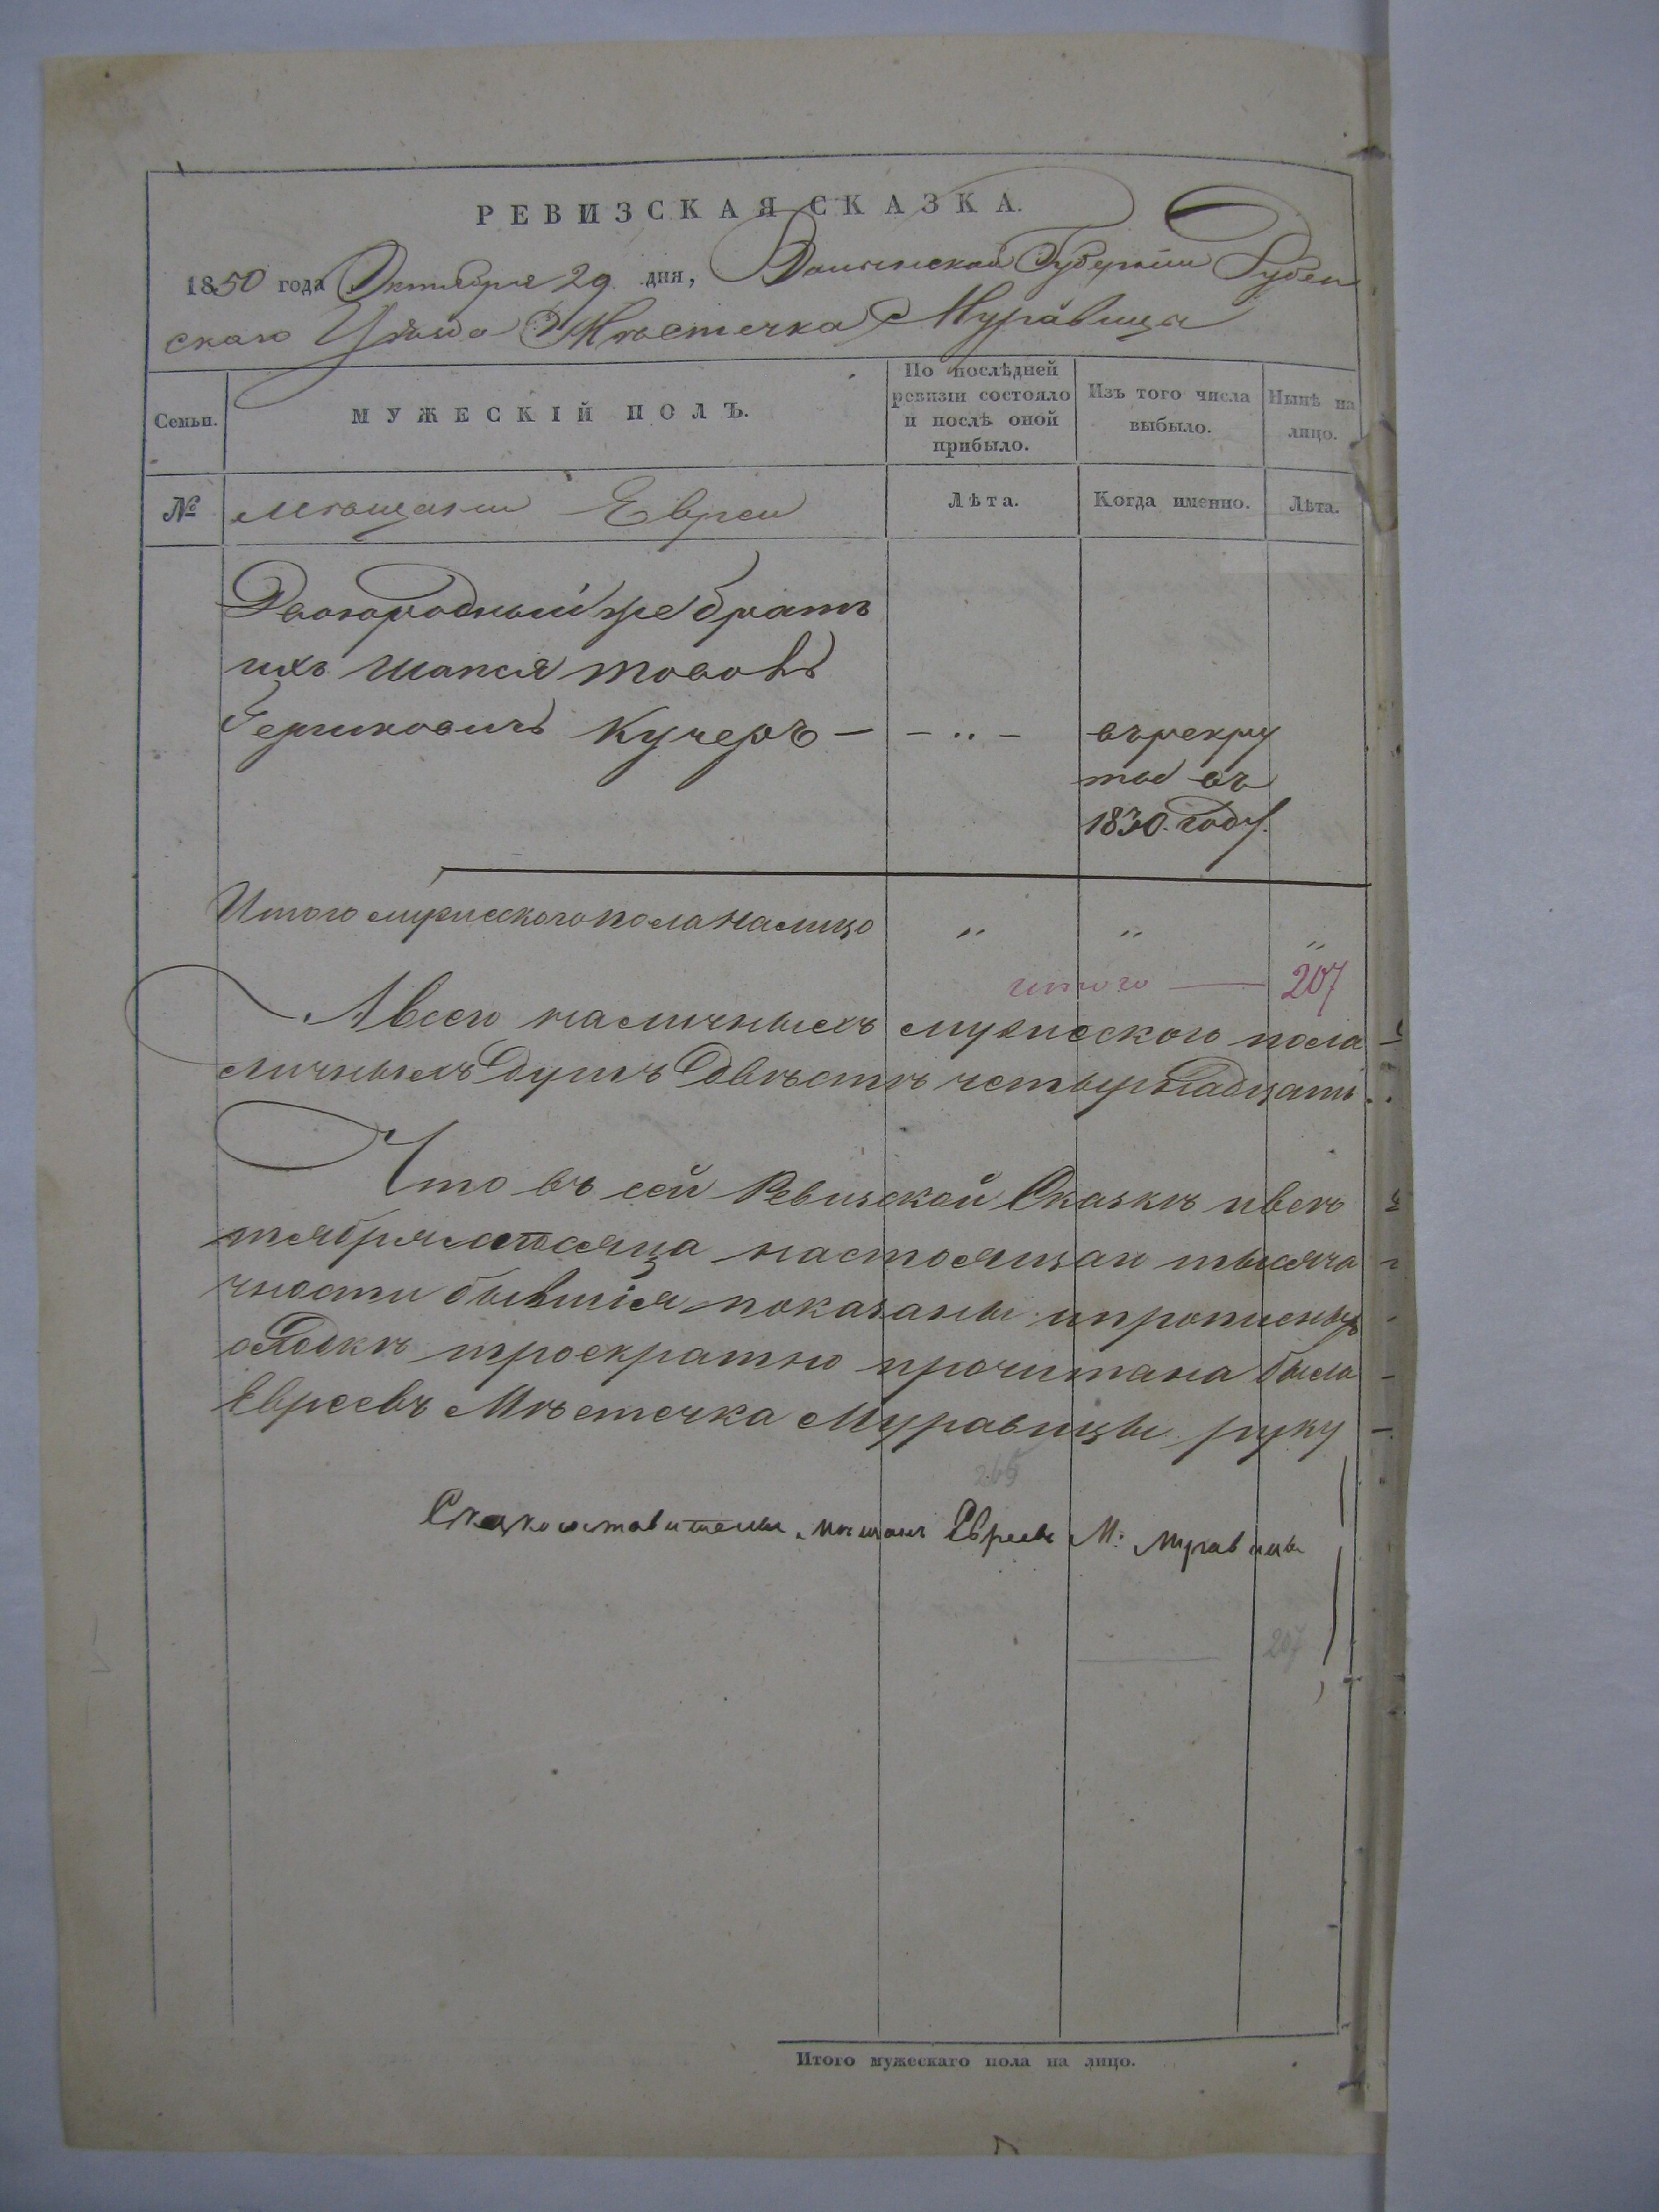 РЕВИЗСКАЯ СКАЗКА.
1850 года Октября 29 дня, Волынской Губернии Дубен
скаго Уѣзда Мѣстечка Муравица
Семьи.
МУЖЕСКІЙ ПОЛЪ.
По послѣдней ревизіи состояло и послѣ оной прибыло.
Изъ того числа выбыло.
Нынѣ на лицо.
№
мѣщани Евреи
Лѣта.
Когда именно.
Лѣта.
Двоюродный же братъ
ихъ Шапся
Кучеръ — — „ —
въ рекру
ты въ
1830. году.
Итого мужескаго пола на лицо „ „ „
итого — 207
А всего наличныхъ мужескаго пола
личныхъ Душъ Двѣстѣ четырнадцать
Что въ сей Ревизской Сказкѣ ивсѣ
тября мѣсяца настоящаи тысяча
чности бывшія показаны ипрописныхъ
троекратно прочитана была
Евреевъ Мѣстечка Муравицы руку
265
Сказкосоставитель Евреевъ М: Муравицы
207
Итого мужескаго пола на лицо.